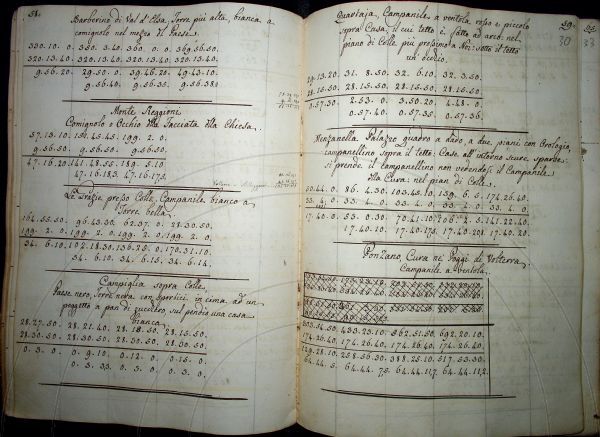 58.
Barberino di Val d'Elsa, Torre più alta, bianca a
comignolo nel mezzo di Paese.
330. 10. 0. 350. 3. 40. 360. 0. 0. 369. 56. 50.
320. 13. 40. 320. 13. 40. 320. 13. 40. 320. 13. 40.
9. 56. 20. 29. 50. 0. 39. 46. 20. 49. 43. 10.
9. 56. 40. 9. 56. 35. 9. 56. 38
Monte Reggioni
Comignolo o Occhio della facciata della Chiesa.
57. 13. 10. 151. 45. 45. 199. 2. 0.
9. 56. 50. 9. 56. 50. 9. 56. 50.
47. 16. 20. 141. 48. 55. 189. 5. 10
47. 16. 18 47. 16. 17
Le Grazie presso Colle, Campanile bianco a
Torre bella.
164. 55. 50. 96. 43. 30. 62. 37. 0. 28. 30. 50.
199. 2. 0. 199. 2. 0. 199. 2. 0. 199. 2. 0.
34. 6. 10. 102. 18. 30. 136. 25. 0. 170. 31. 10.
34. 6. 10. 34. 6. 15. 34. 6. 14.
Campiglia sopra Colle,
Paese nero, Torre nera con sportici in cima, ad un
poggetto a pan di zucchero, sul pendio una casa
bianca.
28. 27. 50. 28. 21. 40. 28. 18. 50. 28. 15. 50.
28. 30. 50. 28. 30. 50. 28. 30. 50. 28. 30. 50.
0. 3. 0. 0. 9. 10. 0. 12. 0. 0. 15. 0.
0. 3. 0. 3. 0. 0. 3. 0.
59.
30
33
Quartaja, Campanile a ventola rosso e piccolo
sopra Casa, il cui tetto è fatto ad arco: nel
piano di Colle più prossimo a Noi: sotto il tetto
un occhio.
29. 13. 20. 31. 8. 50. 32. 6. 10. 32. 3. 50.
28. 15. 50. 28. 15. 50. 28. 15. 50. 28. 15. 50.
0. 57. 30. 2. 53. 0. 3. 50. 20. 4. 48. 0.
0. 57. 40. 0. 57. 35. 0. 57. 36.
Menzanella Palazzo quadro a dado, a due piani con Orologio,
campanellino sopra il tetto. Case all'intorno scure, sparse.
si prende il campanellino non vedendosi il Campanile
della Cura: nel piano di Colle.
50. 44. 0. 86. 4. 30. 103. 45. 10. 139. 6. 5. 174. 26. 40.
33. 4. 0. 33. 4. 0. 33. 4. 0. 33. 4. 0. 33. 4. 0.
17. 40. 0. 53. 0. 30. 70. 41. 10. 106. 2. 5. 141. 22. 40.
17. 40. 10. 17. 40. 17 17. 40. 20 17. 40. 20.
Ponzano, Cura ne' Poggi di Volterra,
Campanile a Ventola.
303. 54. 50. 433. 23. 10. 562. 51. 50. 692. 20. 10.
174. 26. 40. 174. 26. 40. 174. 26. 40. 174. 26. 40.
129. 28. 10. 258. 56. 30. 388. 25. 10. 517. 53. 30.
64. 44. 5. 64. 44. 7 64. 44. 11 64. 44. 11